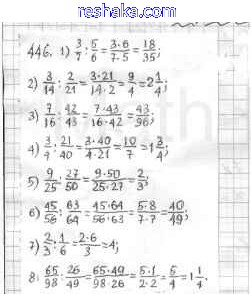 446. 1) 3/7 : 5/6 = 3·6/7·5 = 18/35;
2) 3/14 : 2/21 = 3·21/14·2 = 9/4 = 2 1/4;
3) 7/16 : 42/43 = 7·43/16·42 = 43/96;
4) 3/4 : 21/40 = 3·40/4·21 = 10/7 = 1 3/4;
5) 9/25 : 27/50 = 9·50/25·27 = 2/3;
6) 45/56 : 63/64 = 45·64/56·63 = 5·8/7·7 = 40/49;
7) 2/3 : 1/6 = 2·6/3 = 4;
8: 65/98 : 26/49 = 65·49/98·26 = 5·1/2·2 = 5/4 = 1 1/4.